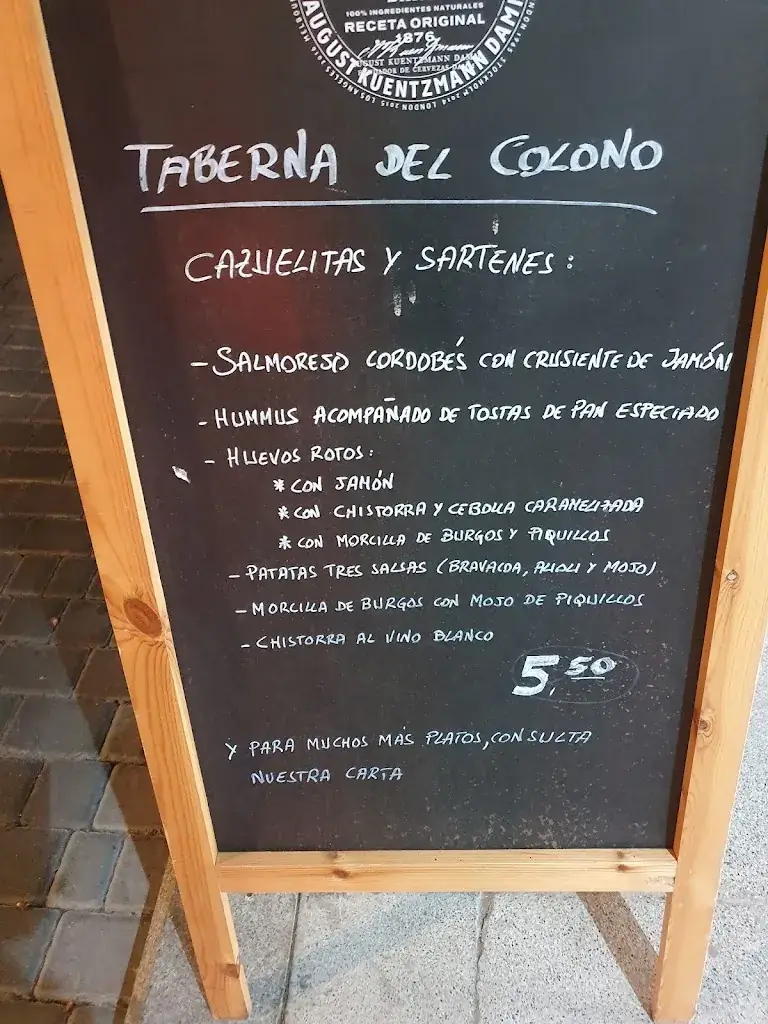 100% INGREDIENTES NATURALES
RECETA ORIGINAL
1876
AUGUST KUENTZMANN DAMM
AUGUST KUENTZMANN DAMM
LOS ANGELES 2015 LONDON 2014 STOCKHOLM
TABERNA DEL COLONO
CAZUELITAS Y SARTENES:
- SALMOREJO CORDOBÉS CON CRUSIENTE DE JAMÓN
- HUMMUS ACOMPAÑADO DE TOSTAS DE PAN ESPECIADO
- HUEVOS ROTOS:
* CON JAMÓN
* CON CHISTORRA Y CEBOLLA CARAMELIZADA
* CON MORCILLA DE BURGOS Y PIQUILLOS
- PATATAS TRES SALSAS (BRAVACOA, ALIOLI Y MOJO)
- MORCILLA DE BURGOS CON MOJO DE PIQUILLOS
- CHISTORRA AL VINO BLANCO
5,50
Y PARA MUCHOS MÁS PLATOS, CONSULTA
NUESTRA CARTA